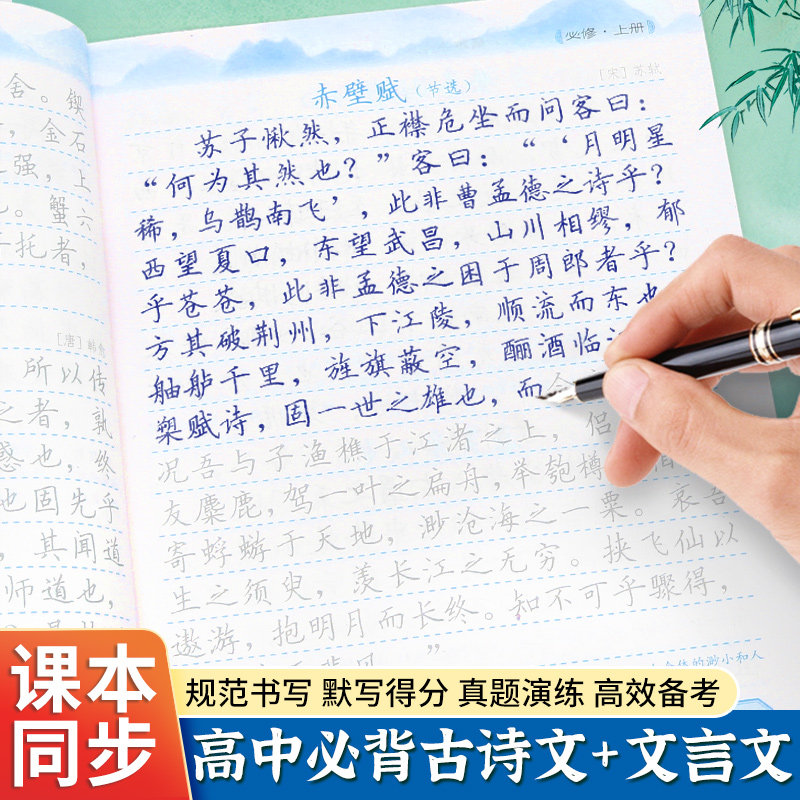 必修·上册
赤壁赋（节选）
[宋]苏轼
苏子愀然，正襟危坐而问客曰：
“何为其然也？”客曰：“‘月明星
稀，乌鹊南飞’，此非曹孟德之诗乎？
西望夏口，东望武昌，山川相缪，郁
乎苍苍，此非孟德之困于周郎者乎？
方其破荆州，下江陵，顺流而东也
舳舻千里，旌旗蔽空，酾酒临
槊赋诗，固一世之雄也，而
况吾与子渔樵于江渚之上，侣
友麋鹿，驾一叶之扁舟，举匏樽
寄蜉蝣于天地，渺沧海之一粟。哀吾
生之须臾，羡长江之无穷。挟飞仙以
遨游，抱明月而长终。知不可乎骤得，
舍。锲
金石
强，上
蟹六
托者，
[唐]韩
所以传
之者，孰
惑也，终
也固先乎
其闻道
师道也，
的渺小和人
课本
同步
规范书写 默写得分 真题演练 高效备考
高中必背古诗文+文言文